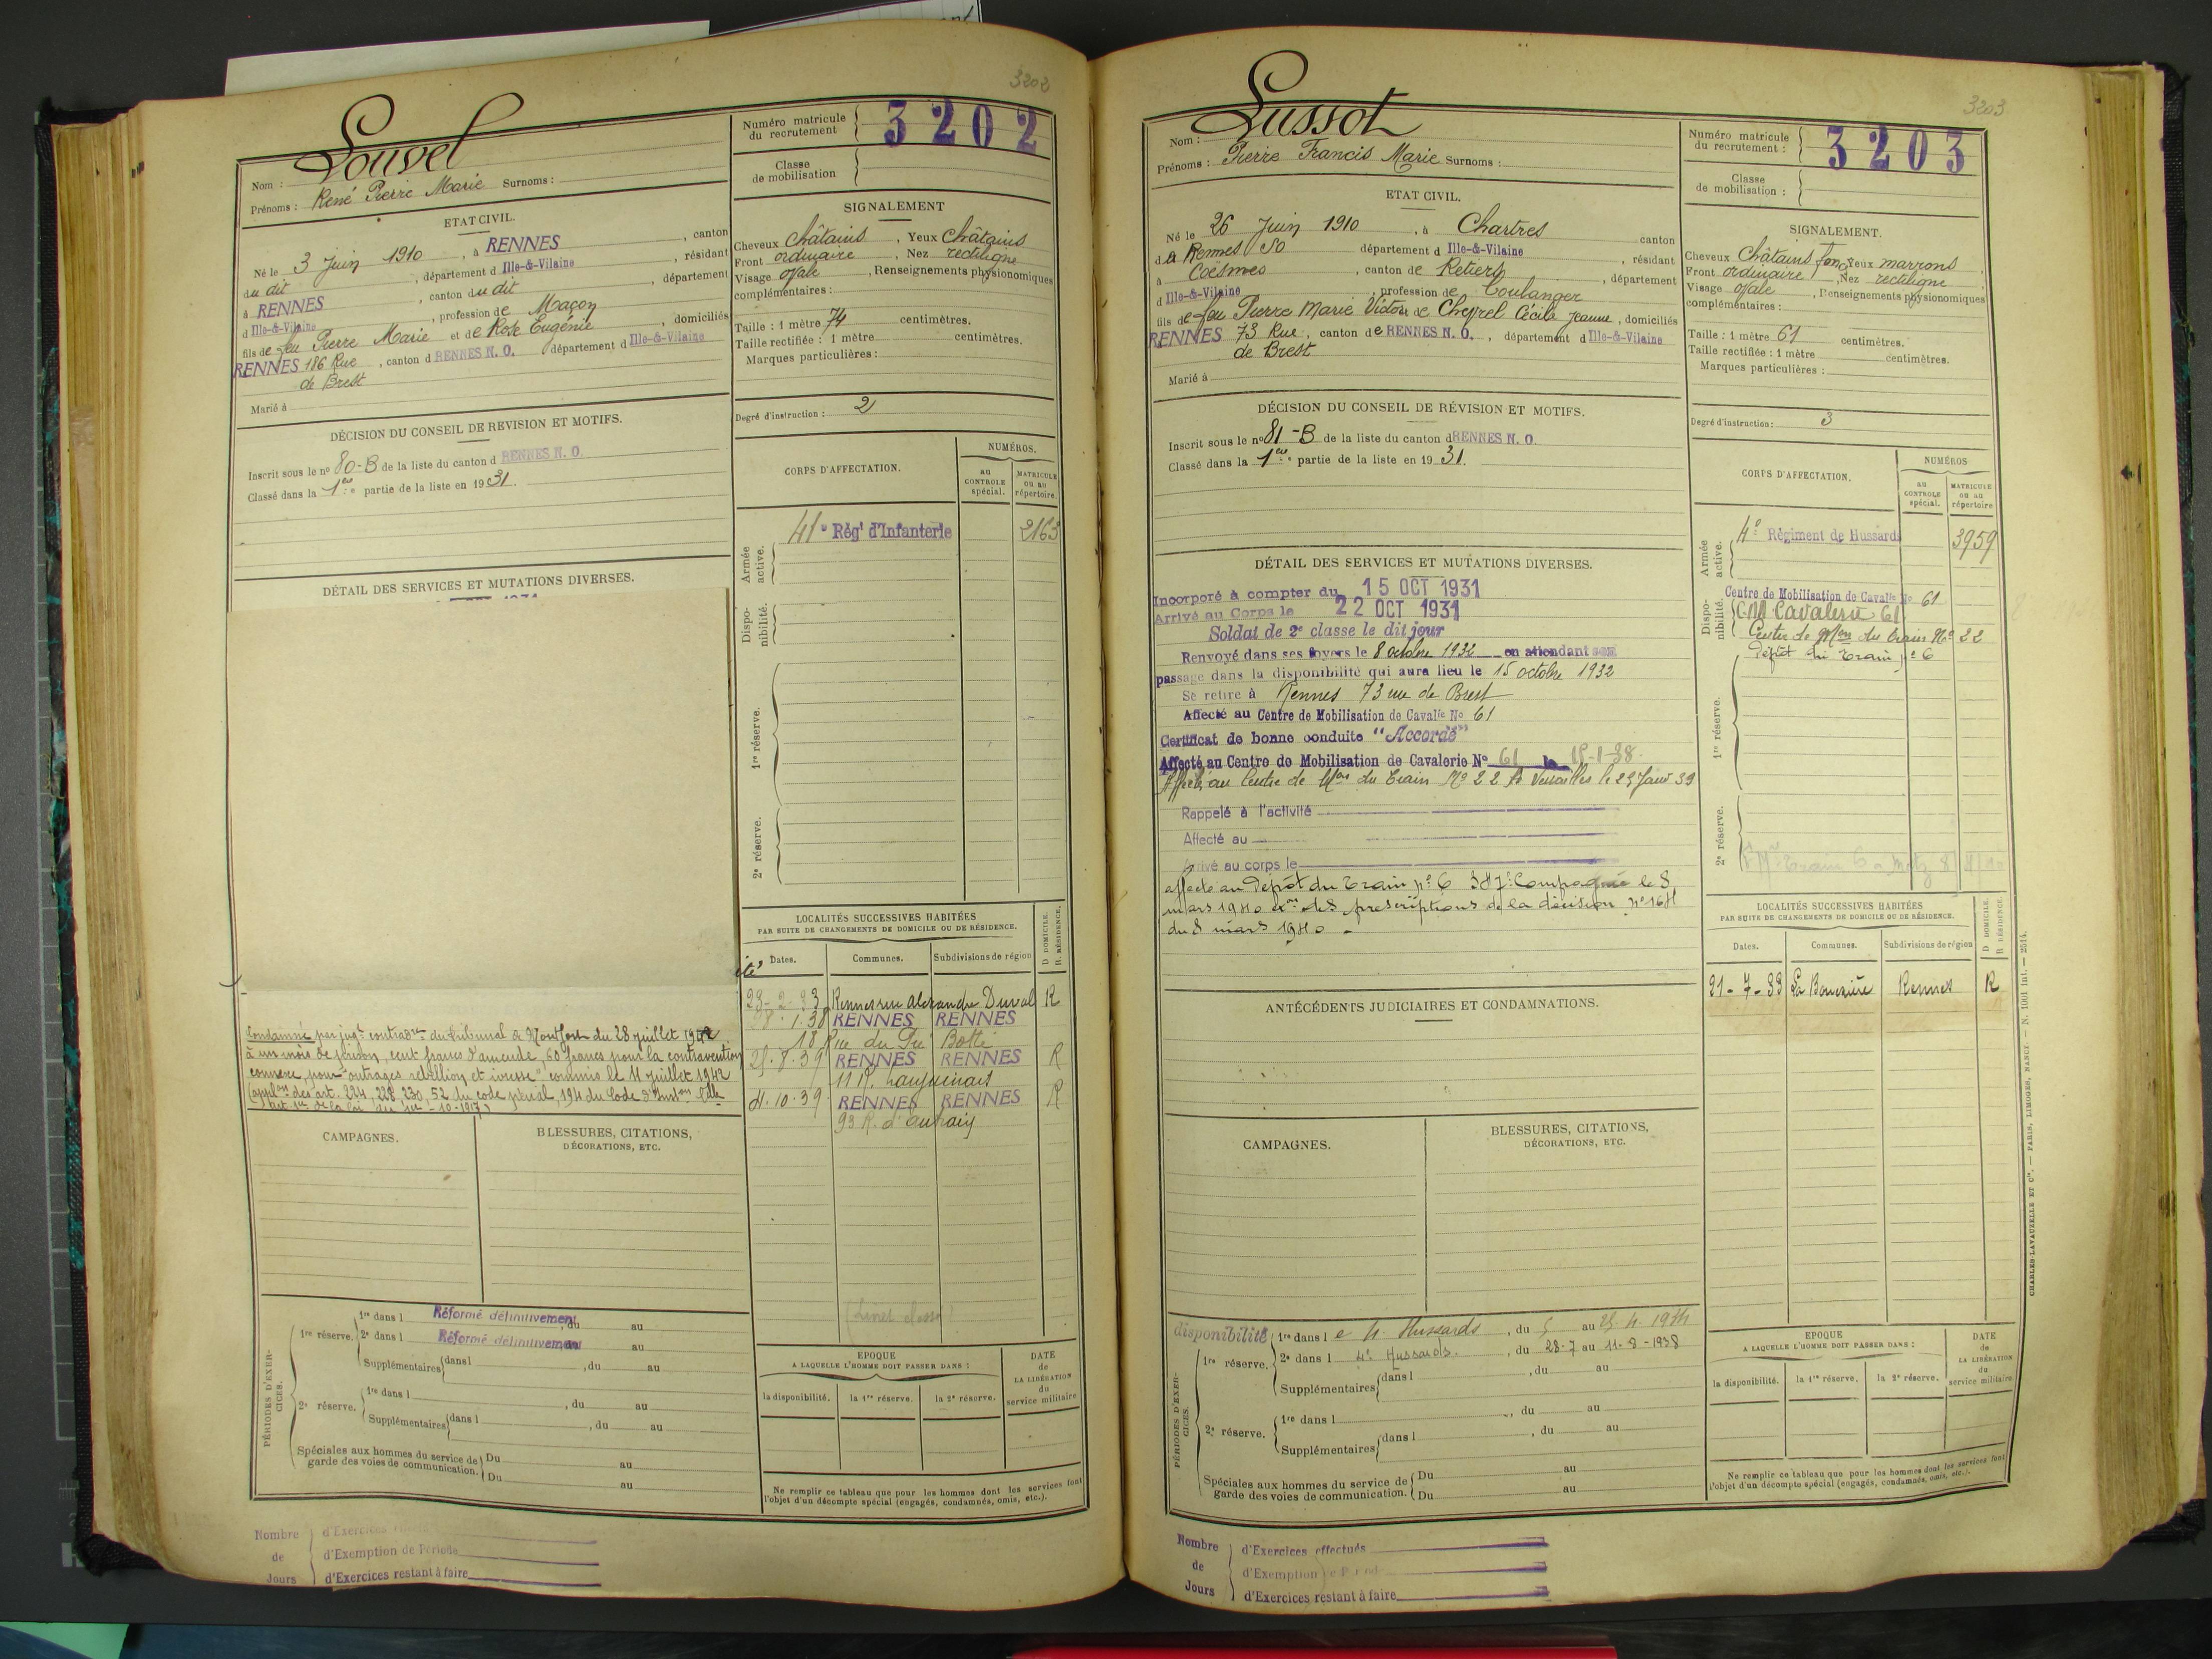 3202
Louvel
Nom :
Prénoms : René Pierre Marie Surnoms :
Numéro matricule
du recrutement
3202
Classe
de mobilisation
ETAT CIVIL.
Né le 3 Juin 1910, à RENNES, canton
du dit, département d Ille-&-Vilaine, résidant
à RENNES, canton du dit, département
d Ille-&-Vilaine, profession de Maçon
fils de feu Pierre Marie et de Role Eugénie, domiciliés
RENNES 186 Rue, canton d RENNES N. O. département d Ille-&-Vilaine
de Brest
Marié à
SIGNALEMENT
Cheveux Châtains, Yeux Châtains
Front ordinaire, Nez rectiligne
Visage ovale, Renseignements physionomiques
complémentaires :
Taille : 1 mètre 74 centimètres.
Taille rectifiée : 1 mètre centimètres.
Marques particulières :
Degré d'instruction : 2
DÉCISION DU CONSEIL DE REVISION ET MOTIFS.
Inscrit sous le nº 80-B de la liste du canton d RENNES N. O.
Classé dans la 1ere partie de la liste en 1931.
DÉTAIL DES SERVICES ET MUTATIONS DIVERSES.
CORPS D'AFFECTATION.
NUMÉROS.
au
CONTROLE
spécial.
MATRICULE
ou au
répertoire.
Armée
active.
41e Rég' d'Infanterie 2163
Dispo-
nibilité.
1re réserve.
2e réserve.
LOCALITÉS SUCCESSIVES HABITÉES
PAR SUITE DE CHANGEMENTS DE DOMICILE OU DE RÉSIDENCE.
D DOMICILE.
R. RÉSIDENCE.
Dates. Communes. Subdivisions de région
28-2-33 Rennes rue Alexandre Duval R
1.38 RENNES RENNES
18 Rue du Pré Botté
25.8.39 RENNES RENNES R
11 R.
4.10.39 RENNES RENNES R
93 R. d'Antrain
Condamné par jugt contradre du tribunal de Montfort du 28 juillet 1942
à un mois de prison, cent francs d'amende, 60 francs pour la contravention
connexe, pour "outrages rébellion et ivresse" commis le 11 juillet 1942
(applon des art. 224, 228, 230, 52 du code pénal, 194 du Code d'Inston Celle
art. 1er de la loi du 1er-10-1917)
CAMPAGNES.
BLESSURES, CITATIONS,
DÉCORATIONS, ETC.
PÉRIODES D'EXER-
CICES.
1re réserve.
1re dans l Réformé définitivement du au
2e dans l Réformé définitivement au
Supplémentaires dans l , du au
2e réserve.
1re dans l , du au
Supplémentaires dans l , du au
Spéciales aux hommes du service de
garde des voies de communication.
Du au
Du au
EPOQUE
A LAQUELLE L'HOMME DOIT PASSER DANS :
DATE
de
LA LIBÉRATION
du
service militaire
la disponibilité. la 1re réserve. la 2e réserve.
Ne remplir ce tableau que pour les hommes dont les services font
l'objet d'un décompte spécial (engagés, condamnés, omis, etc.).
Nombre
de
Jours
d'Exercices
d'Exemption de Période
d'Exercices restant à faire
3203
Lussot
Nom :
Prénoms : Pierre Francis Marie Surnoms :
Numéro matricule
du recrutement :
3203
Classe
de mobilisation :
ETAT CIVIL.
Né le 26 Juin 1910, à Chartres canton
de Rennes SO département d Ille-&-Vilaine, résidant
à Coësmes, canton de Retiers, département
d Ille-&-Vilaine, profession de boulanger
fils de feu Pierre Marie Victor de Cheprel Cécile Jeanne, domiciliés
RENNES 73 Rue, canton de RENNES N. O., département d Ille-&-Vilaine
de Brest
Marié à
SIGNALEMENT.
Cheveux Châtains foncé Yeux marrons
Front ordinaire, Nez rectiligne
Visage ovale, Renseignements physionomiques
complémentaires :
Taille : 1 mètre 61 centimètres.
Taille rectifiée : 1 mètre centimètres.
Marques particulières :
Degré d'instruction : 3
DÉCISION DU CONSEIL DE RÉVISION ET MOTIFS.
Inscrit sous le nº 81-B de la liste du canton d RENNES N. O.
Classé dans la 1ere partie de la liste en 1931.
DÉTAIL DES SERVICES ET MUTATIONS DIVERSES.
Incorporé à compter du 15 OCT 1931
Arrivé au Corps le 22 OCT 1931
Soldat de 2e classe le dit jour
Renvoyé dans ses foyers le 8 octobre 1932 en attendant son
passage dans la disponibilité qui aura lieu le 15 octobre 1932
Se retire à Rennes 73 rue de Brest
Affecté au Centre de Mobilisation de Cavalie No 61
Certificat de bonne conduite "Accordé"
Affecté au Centre de Mobilisation de Cavalerie Nº 61 le 15-1-38.
Affecté au Centre de Mon du Train Nº 22 à Versailles le 25 Janv 39
Rappelé à l'activité
Affecté au
Arrivé au corps le
affecté au dépôt du Train nº 6 387e Compagnie le 8
mars 1940 exon des prescriptions de la décision nº 1641
du 8 mars 1940 -
ANTÉCÉDENTS JUDICIAIRES ET CONDAMNATIONS.
CORPS D'AFFECTATION.
NUMÉROS
au
CONTROLE
spécial.
MATRICULE
ou au
répertoire
Armée
active.
4e Régiment de Hussards 3959
Dispo-
nibilité.
Centre de Mobilisation de Cavalie No 61
C M Cavalerie 61
Centre de Mon du Train No 22
Dépôt du Train nº 6
1re réserve.
2e réserve.
LOCALITÉS SUCCESSIVES HABITÉES
PAR SUITE DE CHANGEMENTS DE DOMICILE OU DE RÉSIDENCE.
D DOMICILE.
R RÉSIDENCE.
Dates. Communes. Subdivisions de région
21-7-33 La Bouëxière Rennes R
CAMPAGNES.
BLESSURES, CITATIONS,
DÉCORATIONS, ETC.
PÉRIODES D'EXER-
CICES.
disponibilité
1re réserve.
1re dans l e 4. Hussards, du 5 au 25.4.1934
2e dans l 4e Hussards., du 28-7 au 11-8-1938
Supplémentaires dans l , du au
2e réserve.
1re dans l , du au
Supplémentaires dans l , du au
Spéciales aux hommes du service de
garde des voies de communication.
Du au
Du au
EPOQUE
A LAQUELLE L'HOMME DOIT PASSER DANS :
DATE
de
LA LIBÉRATION
du
service militaire.
la disponibilité. la 1re réserve. la 2e réserve.
Ne remplir ce tableau que pour les hommes dont les services font
l'objet d'un décompte spécial (engagés, condamnés, omis, etc.).
Nombre
de
Jours
d'Exercices effectués
d'Exemption
d'Exercices restant à faire
CHARLES-LAVAUZELLE ET Cie. — PARIS, LIMOGES, NANCY. — N. 1001 Int. — 2514.